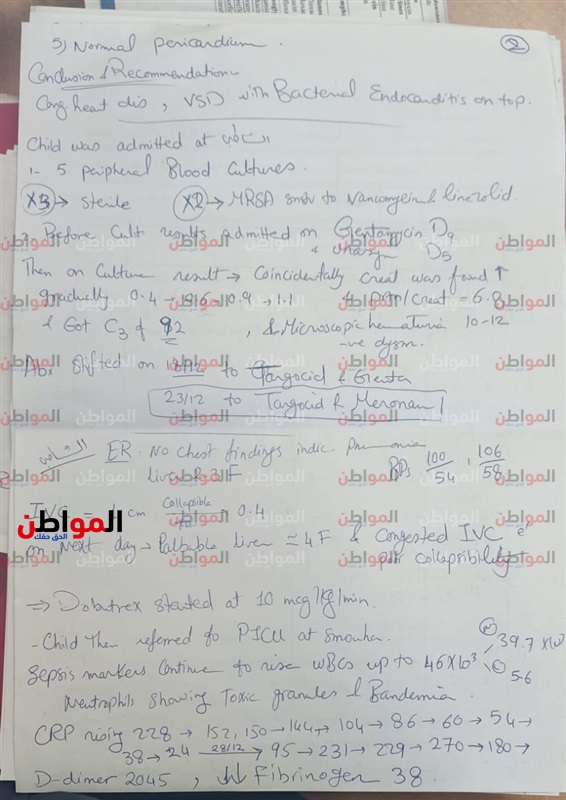 2
5) Normal pericardium.
Conclusion & Recommendation
Cong. heart dis, VSD with Bacterial Endocarditis on top.
Child was admitted at
1- 5 Peripheral Blood Cultures.
X3 → Sterile X2 → MRSA sensitiv to Vancomycin & linezolid.
Before Cult results admitted on Gentamycin D9
& D5
Then on Culture result → Coincidentally creat was found ↑
gradually 0.4 → → 0.9 → 1.1 /creat = 6.8
& Got C3 of 92, & Microscopic hematuria 10-12
-ve dysm.
Abx Shifted on 18/12 to Targocid & Genta
23/12 to Targocid & Meronam
ER: No Chest findings indic. Pneumonia BPs 100/54, 106/58
liver 2-3 F
IVC = 1 cm Collapsible 0.4
on Next day → Palbable liver ≃ 4F & Congested IVC
poor collapsibility
⇒ Dobutrex started at 10 mcg/kg/min.
- Child then referred to PICU at smouha.
Sepsis markers Continue to rise WBCs up to 46x10³ 39.7 x10³
5.6
Neutrophils showing Toxic granules & Bandemia.
CRP rising 228 → 152, 150 → 144 → 104 → 86 → 60 → 54 →
38 → 24 28/12 → 95 → 231 → 229 → 270 → 180 →
D-dimer 2045, ↓↓ Fibrinogen 38.
المواطن
الحق حقك